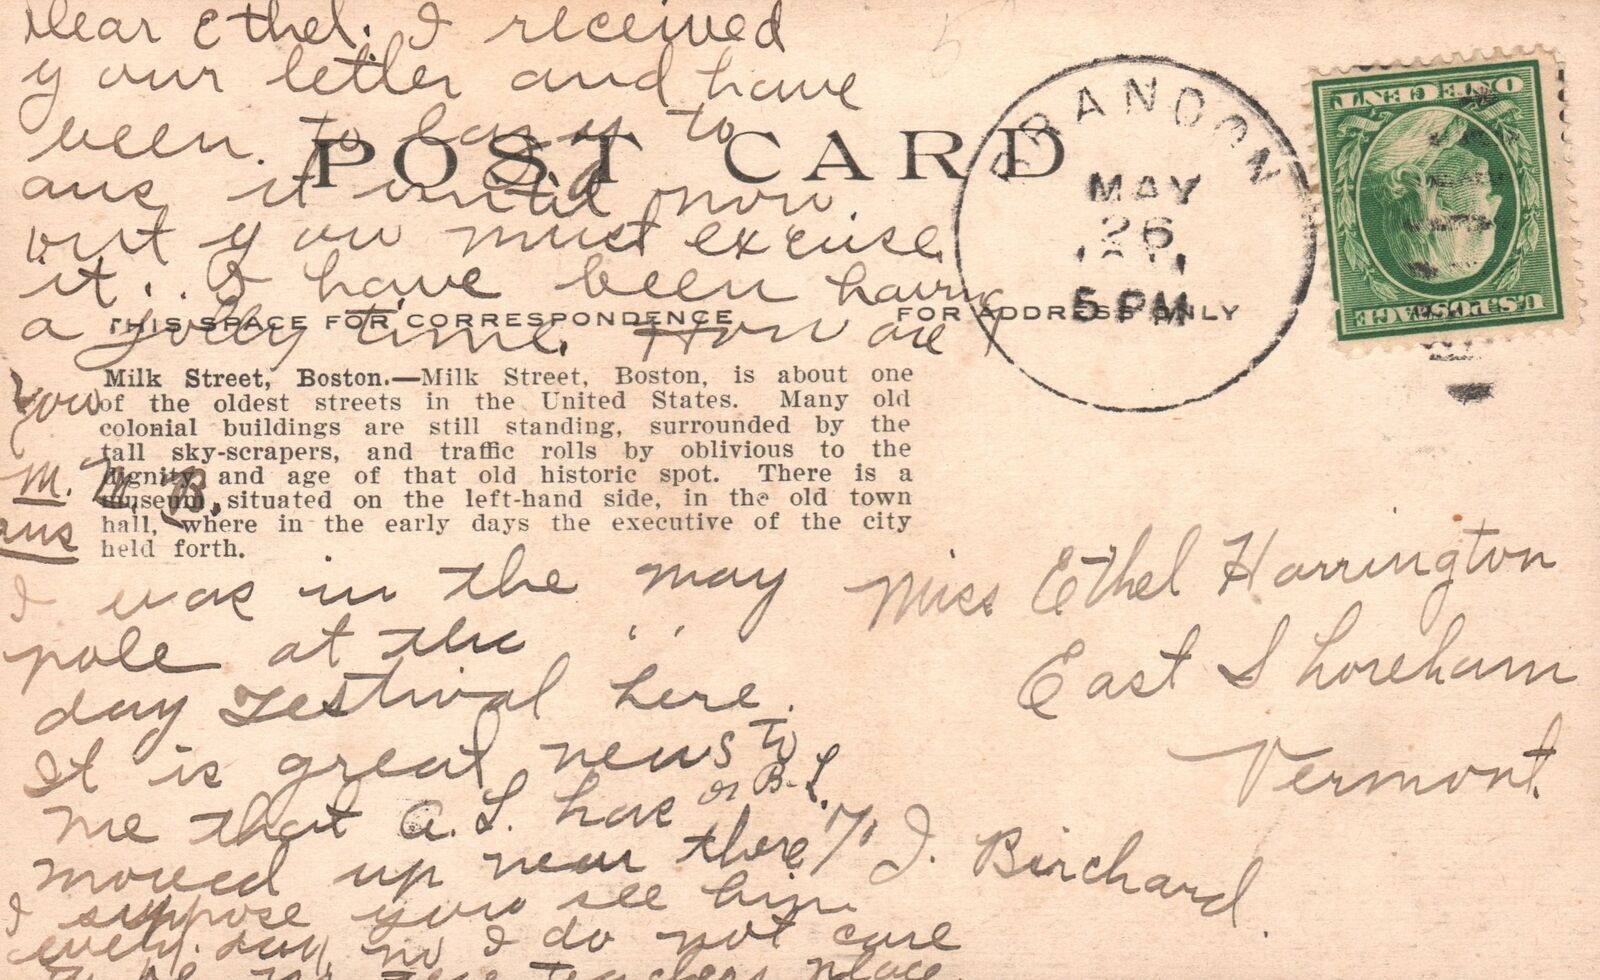 Dear Ethel. I received
your letter and have
been to busy to
ans it until now.
but you must excuse
it. I have been having
a jolly time. How are
you
M. M. B.
ans
POST CARD
THIS SPACE FOR CORRESPONDENCE
FOR ADDRESS ONLY
Milk Street, Boston.—Milk Street, Boston, is about one
of the oldest streets in the United States. Many old
colonial buildings are still standing, surrounded by the
tall sky-scrapers, and traffic rolls by oblivious to the
dignity and age of that old historic spot. There is a
museum, situated on the left-hand side, in the old town
hall, where in the early days the executive of the city
held forth.
I was in the may
pole at the " "
day Festival here.
It is great news to
me that A. L. has or B. L.
moved up near there
I suppose you see him
every day, no I do not care
teachers place
BRANDON
MAY
26
5 PM
ONE CENT
U.S. POSTAGE
Miss Ethel Harrington
East Shoreham
Vermont.
% J. Birchard.